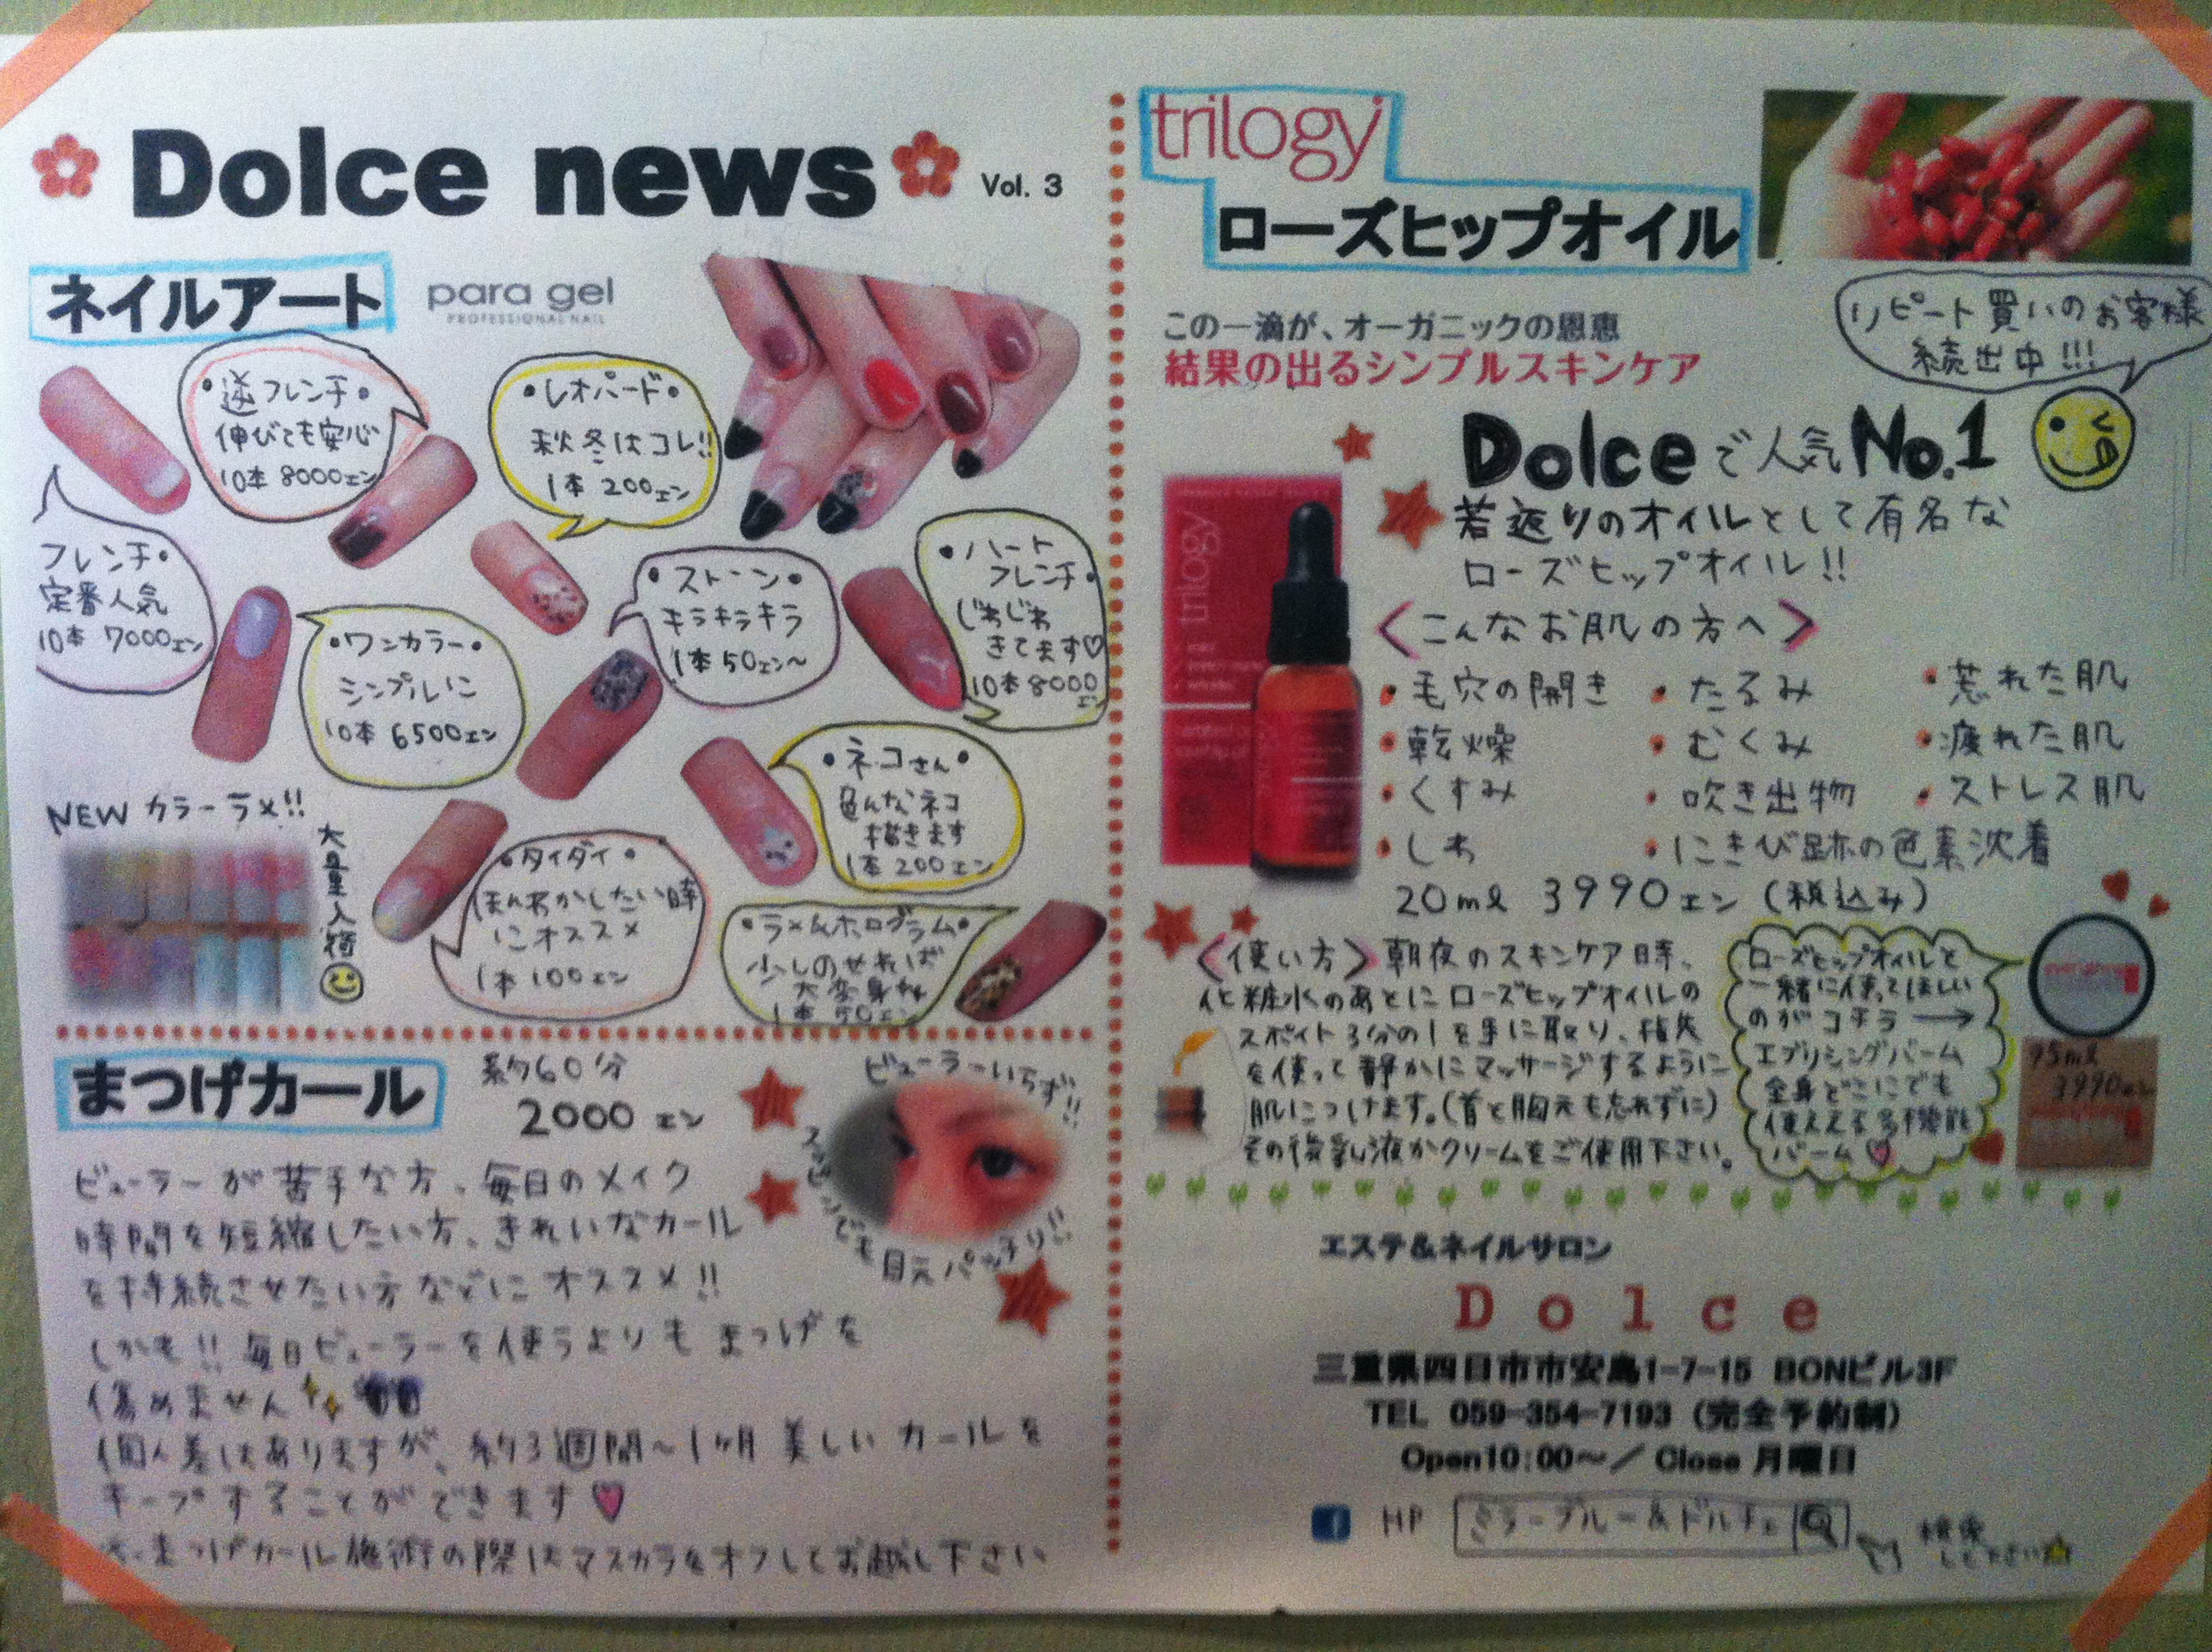 Dolce news
Vol. 3
ネイルアート
para gel
PROFESSIONAL NAIL
・逆フレンチ・
伸びても安心
10本 8000エン
・レオパード・
秋冬はコレ!!
1本 200エン
フレンチ・
定番人気
10本 7000エン
・ワンカラー・
シンプルに
10本 6500エン
・ストーン・
キラキラキラ
1本 50エン〜
・ハート
フレンチ・
じわじわ
きてます♡
10本 8000
エン
・ネコさん・
色んなネコ
描きます
1本 200エン
NEW カラーラメ!!
大量入荷
・タイダイ・
ほんわかしたい時
にオススメ
1本 100エン
・ラメ&ホログラム・
少しのせれば
大変身
1本 50エン
まつげカール
約60分
2000 エン
ビューラーいらず!!
スッピンでも目元パッチリ!!
ビューラーが苦手な方、毎日のメイク
時間を短縮したい方、きれいなカール
を持続させたい方などにオススメ!!
しかも!! 毎日ビューラーを使うよりもまつげを
傷めません
個人差はありますが、約3週間〜1ヶ月 美しいカールを
キープすることができます♡
※まつげカール施術の際はマスカラをオフしてお越し下さい
trilogy
ローズヒップオイル
この一滴が、オーガニックの恩恵
結果の出るシンプルスキンケア
リピート買いのお客様
続出中!!!
Dolceで人気No.1
若返りのオイルとして有名な
ローズヒップオイル!!
trilogy
<こんなお肌の方へ>
・毛穴の開き ・たるみ ・荒れた肌
・乾燥 ・むくみ ・疲れた肌
・くすみ ・吹き出物 ・ストレス肌
・しわ ・にきび跡の色素沈着
20ml 3990エン (税込み)
<使い方> 朝夜のスキンケア時、
化粧水のあとにローズヒップオイルの
スポイト3分の1を手に取り、指先
を使って静かにマッサージするように
肌につけます。(首と胸元も忘れずに)
その後乳液かクリームをご使用下さい。
ローズヒップオイルと
一緒に使ってほしい
のがコチラ→
エブリシングバーム
全身どこにでも
使える多機能
バーム♡
95ml
3990エン
エステ&ネイルサロン
Dolce
三重県四日市市安島1-7-15 BONビル3F
TEL 059-354-7193 (完全予約制)
Open10:00〜/ Close 月曜日
f HP ミラーブルー&ドルチェ
検索
して下さい